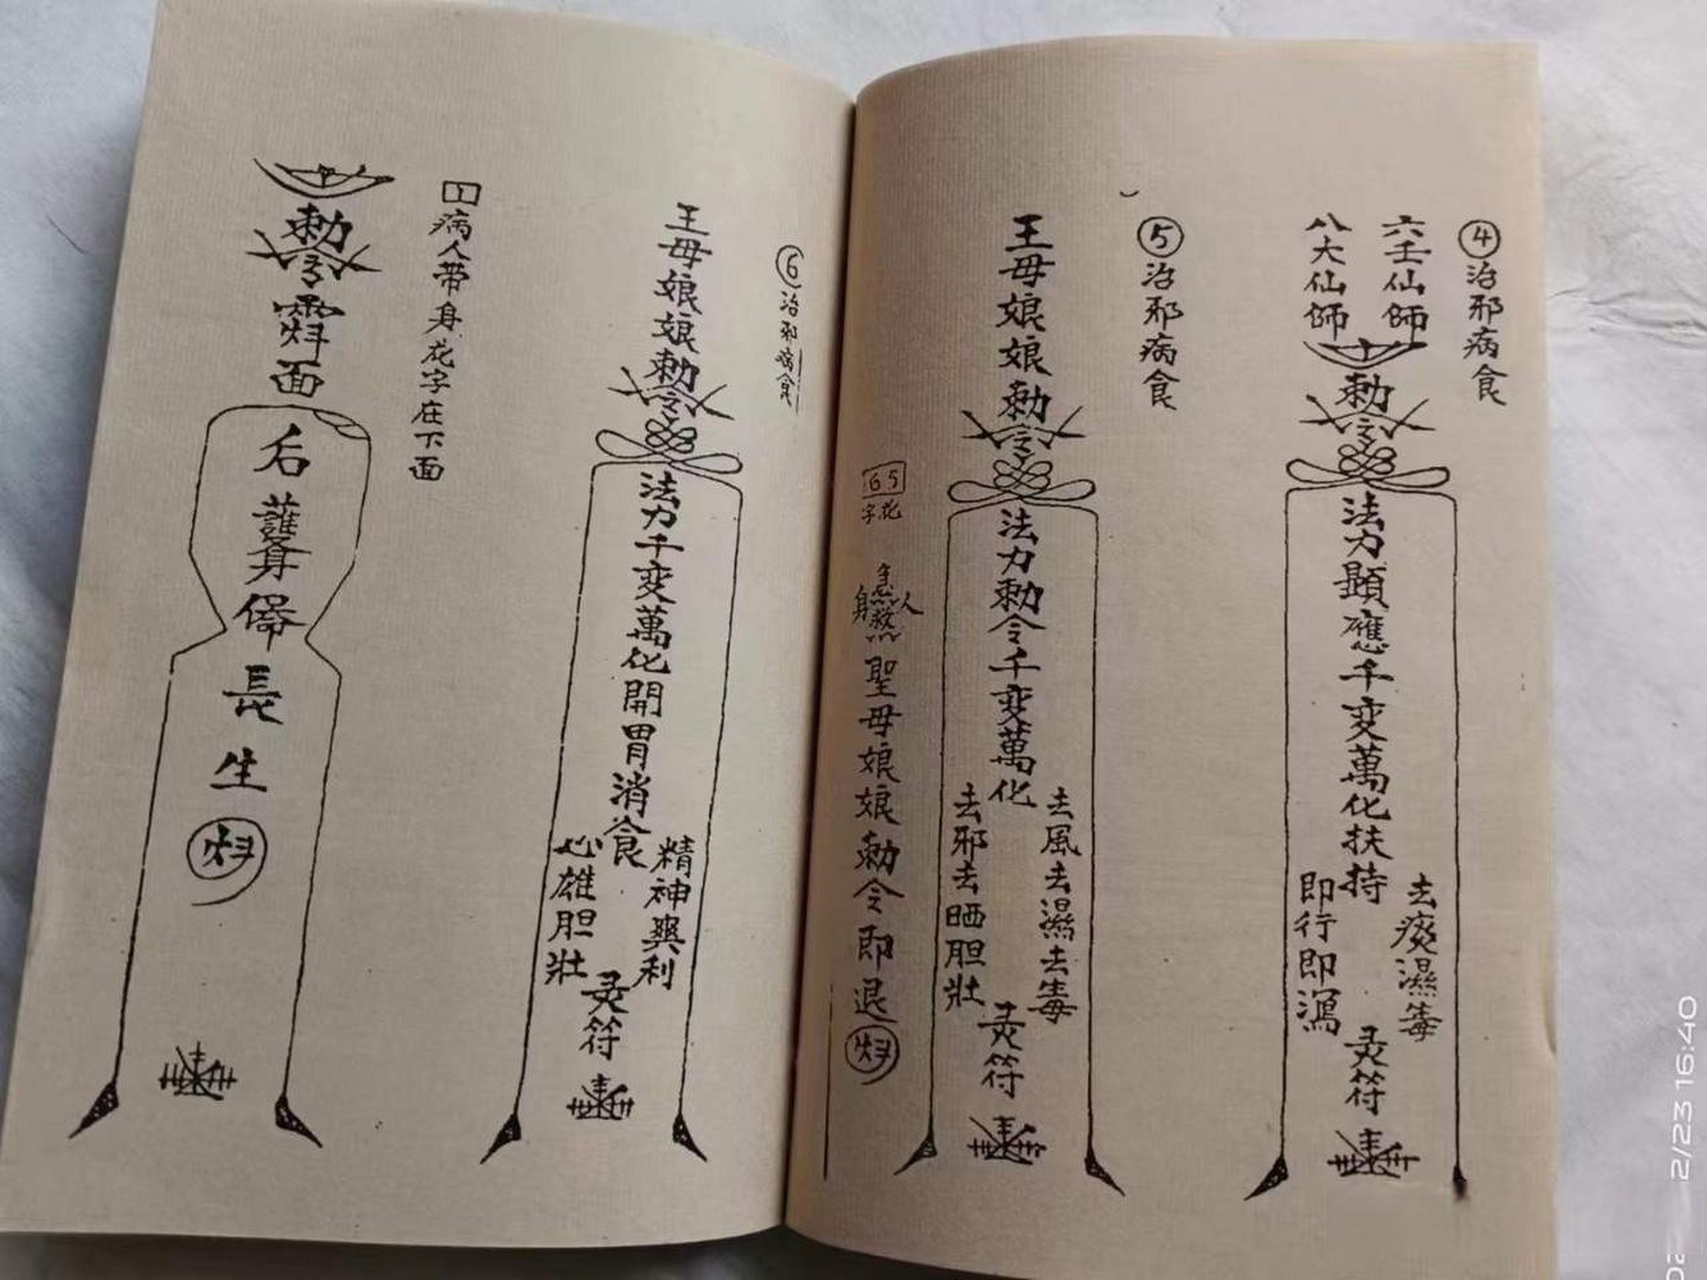 ④治邪病食
六壬仙師
八大仙師
勅令
法力顯應千变萬化扶持
去痰濕毒
即行即瀉
灵符
⑤治邪病食
王母娘娘勅令
法力勅令千变萬化
去風去濕去毒
去邪去晒胆壯
灵符
65
花字
聖母娘娘勅令即退
⑥治邪病食
王母娘娘勅令
法力千变萬化開胃消食
精神爽利
心雄胆壯
灵符
1病人带身花字在下面
勅令
面
護身
長生
2/23 16:40